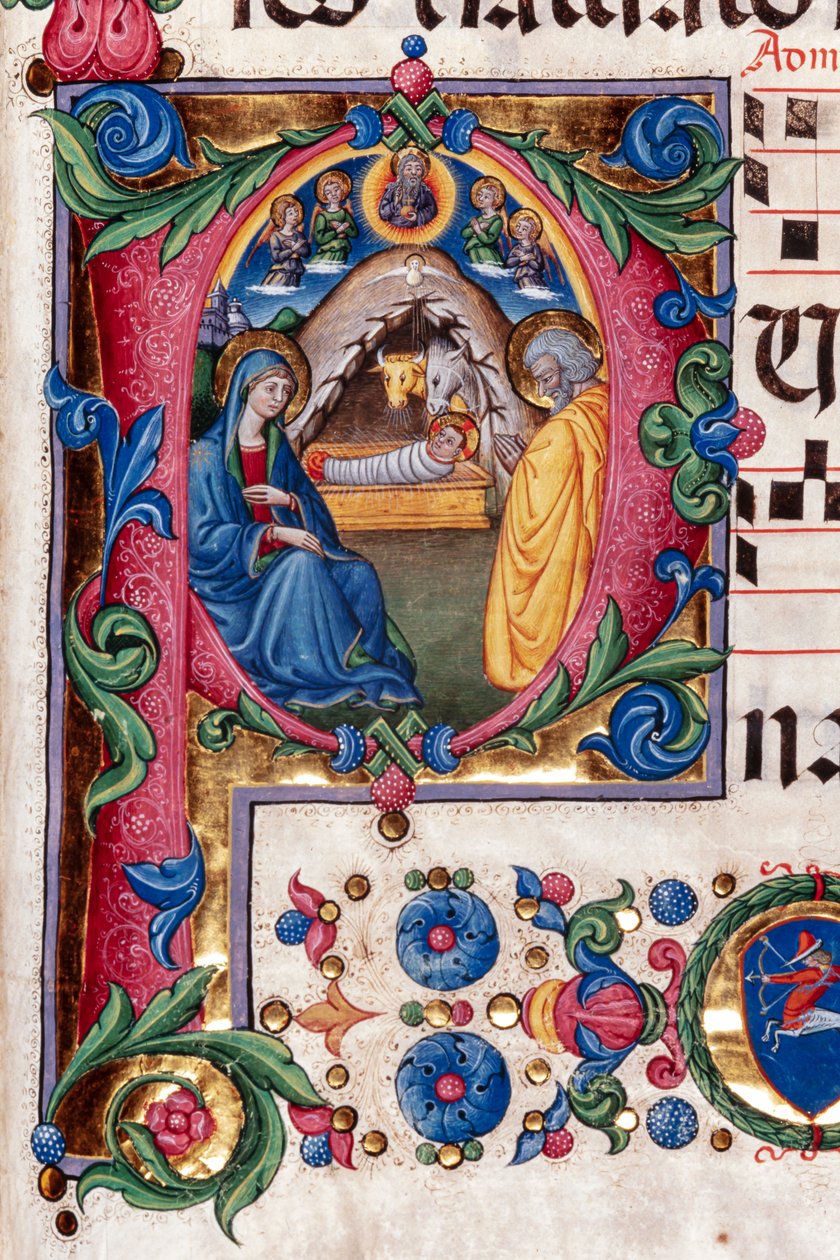 Adm
PU
na